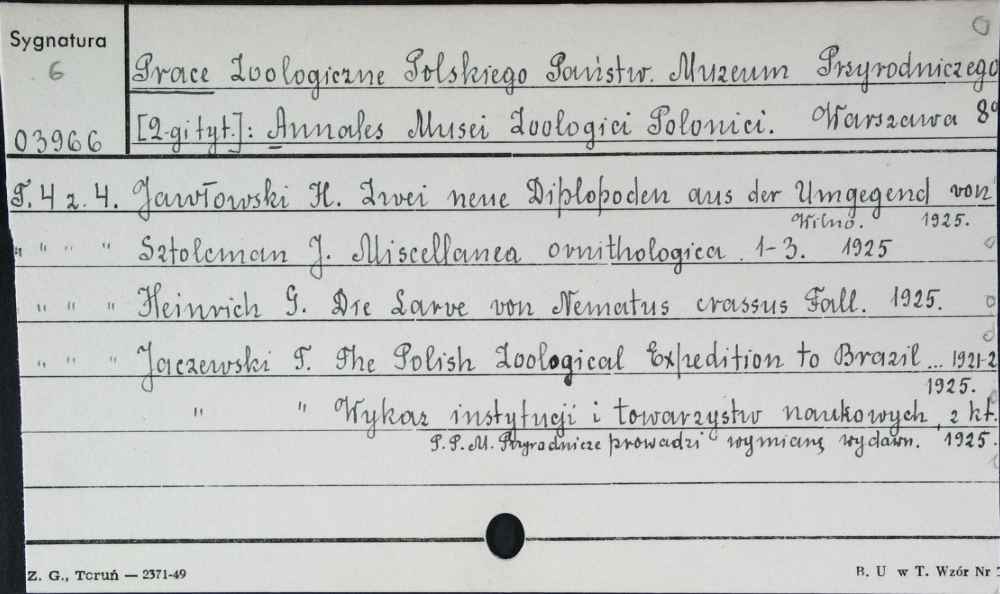 Sygnatura
6
03966
Prace Zoologiczne Polskiego Państw. Muzeum Przyrodniczego
[2-gi tyt.]: Annales Musei Zoologici Polonici. Warszawa 8°
T. 4 z. 4. Jawłowski H. Zwei neue Diplopoden aus der Umgegend von
Wilno. 1925.
" " " " Sztolcman J. Miscellanea ornithologica 1-3. 1925
" " " Heinrich G. Die Larve von Nematus crassus Fall. 1925.
" " " Jaczewski T. The Polish Zoological Expedition to Brazil ... 1921-2
1925.
" " Wykaz instytucji i towarzystw naukowych, z kt.
P. P. M. Przyrodnicze prowadzi wymianę wydawn. 1925.
Z. G., Toruń — 2371-49
B. U w T. Wzór Nr